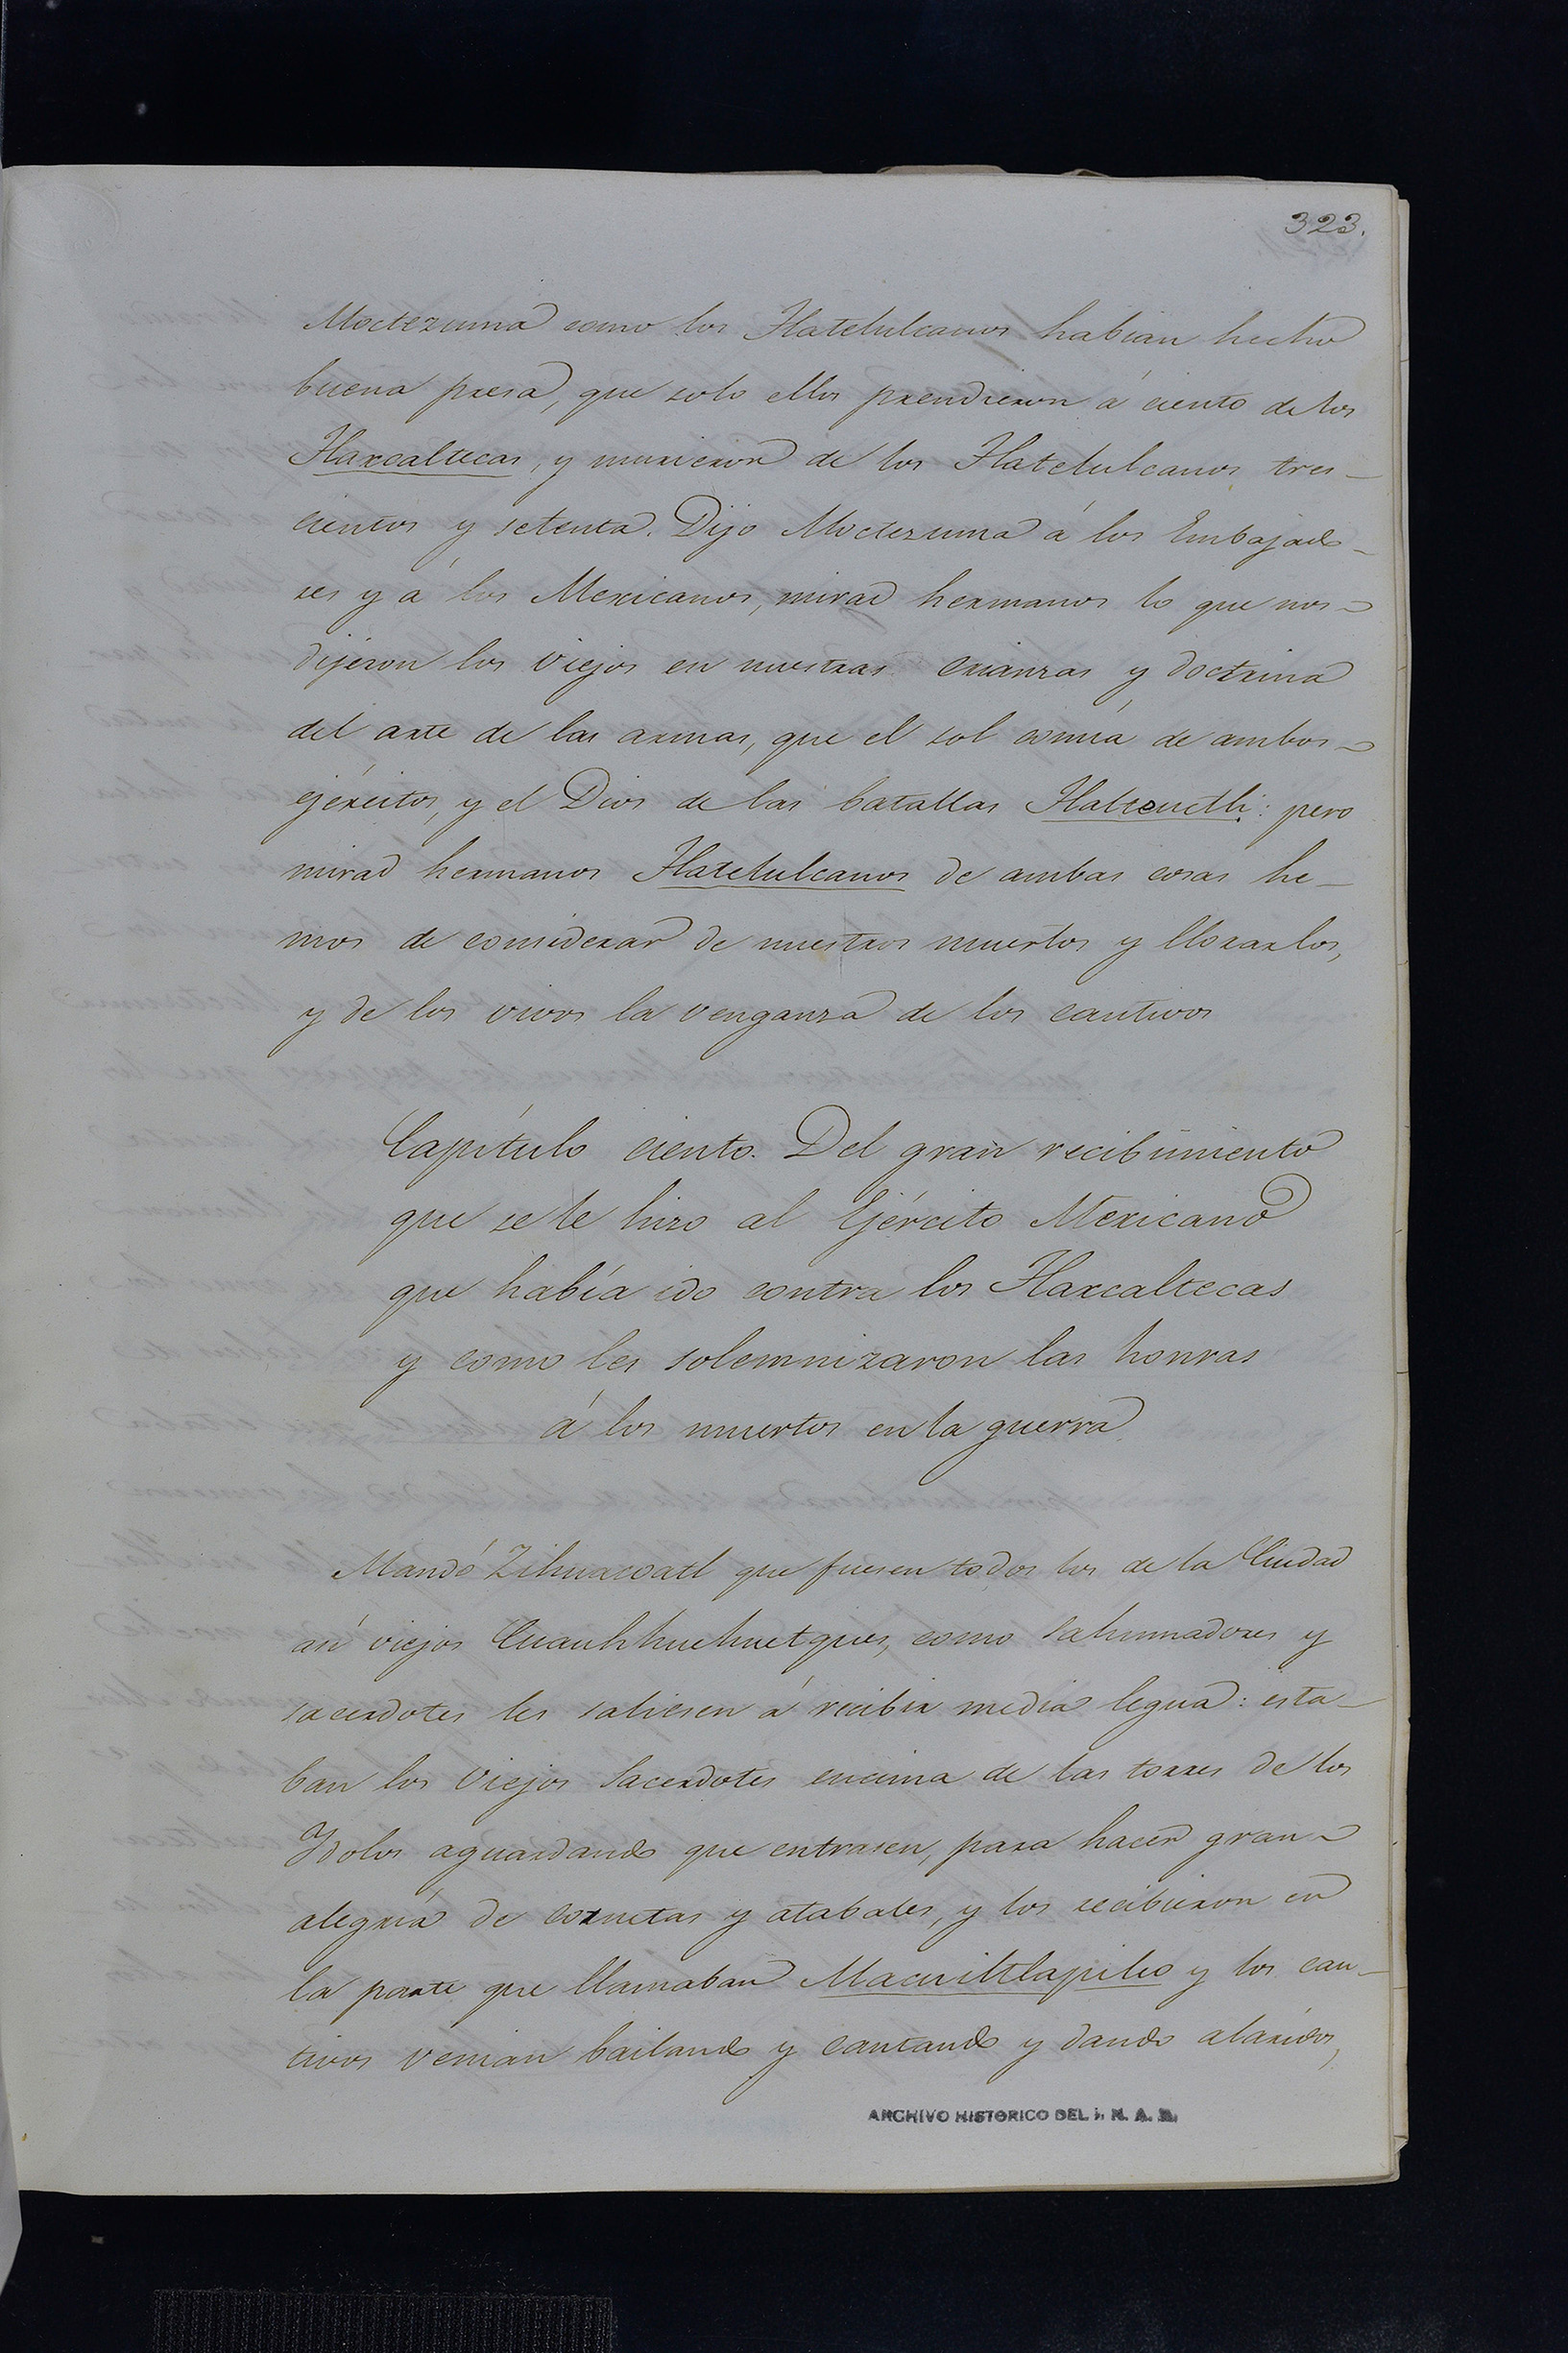 323.
Moctezuma como los Tlatelulcanos habian hecho
buena presa, que solo ellos prendieron á ciento de los
Tlaxcaltecas, y murieron de los Tlatelulcanos tres-
cientos y setenta. Dijo Moctezuma á los Embajado-
res y á los Mexicanos, mirad hermanos lo que nos
dijeron los viejos en nuestras crianzas y doctrina
del arte de las armas, que el sol comía de ambos
ejércitos, y el Dios de las batallas : pero
mirad hermanos Tlatelulcanos de ambas cosas he-
mos de considerar de nuestros muertos y llorarlos,
y de los vivos la venganza de los cautivos
Capítulo ciento. Del gran recibimiento
que se le hizo al Ejército Mexicano
que había ido contra los Tlaxcaltecas
y como les solemnizaron las honras
á los muertos en la guerra
Mandó Zihuacoatl que fuesen todos los de la Ciudad
así viejos Cuauhhuehuetques, como sahumadores y
sacerdotes les saliesen á recibir media legua: esta-
ban los viejos Sacerdotes encima de las torres de los
Ydolos aguardando que entrasen, para hacer gran
alegría de cornetas y atabales, y los recibieron en
la parte que llamaban Macuitlapilco y los cau-
tivos venian bailando y cantando y dando alaridos,
ARCHIVO HISTORICO DEL I. N. A. H.